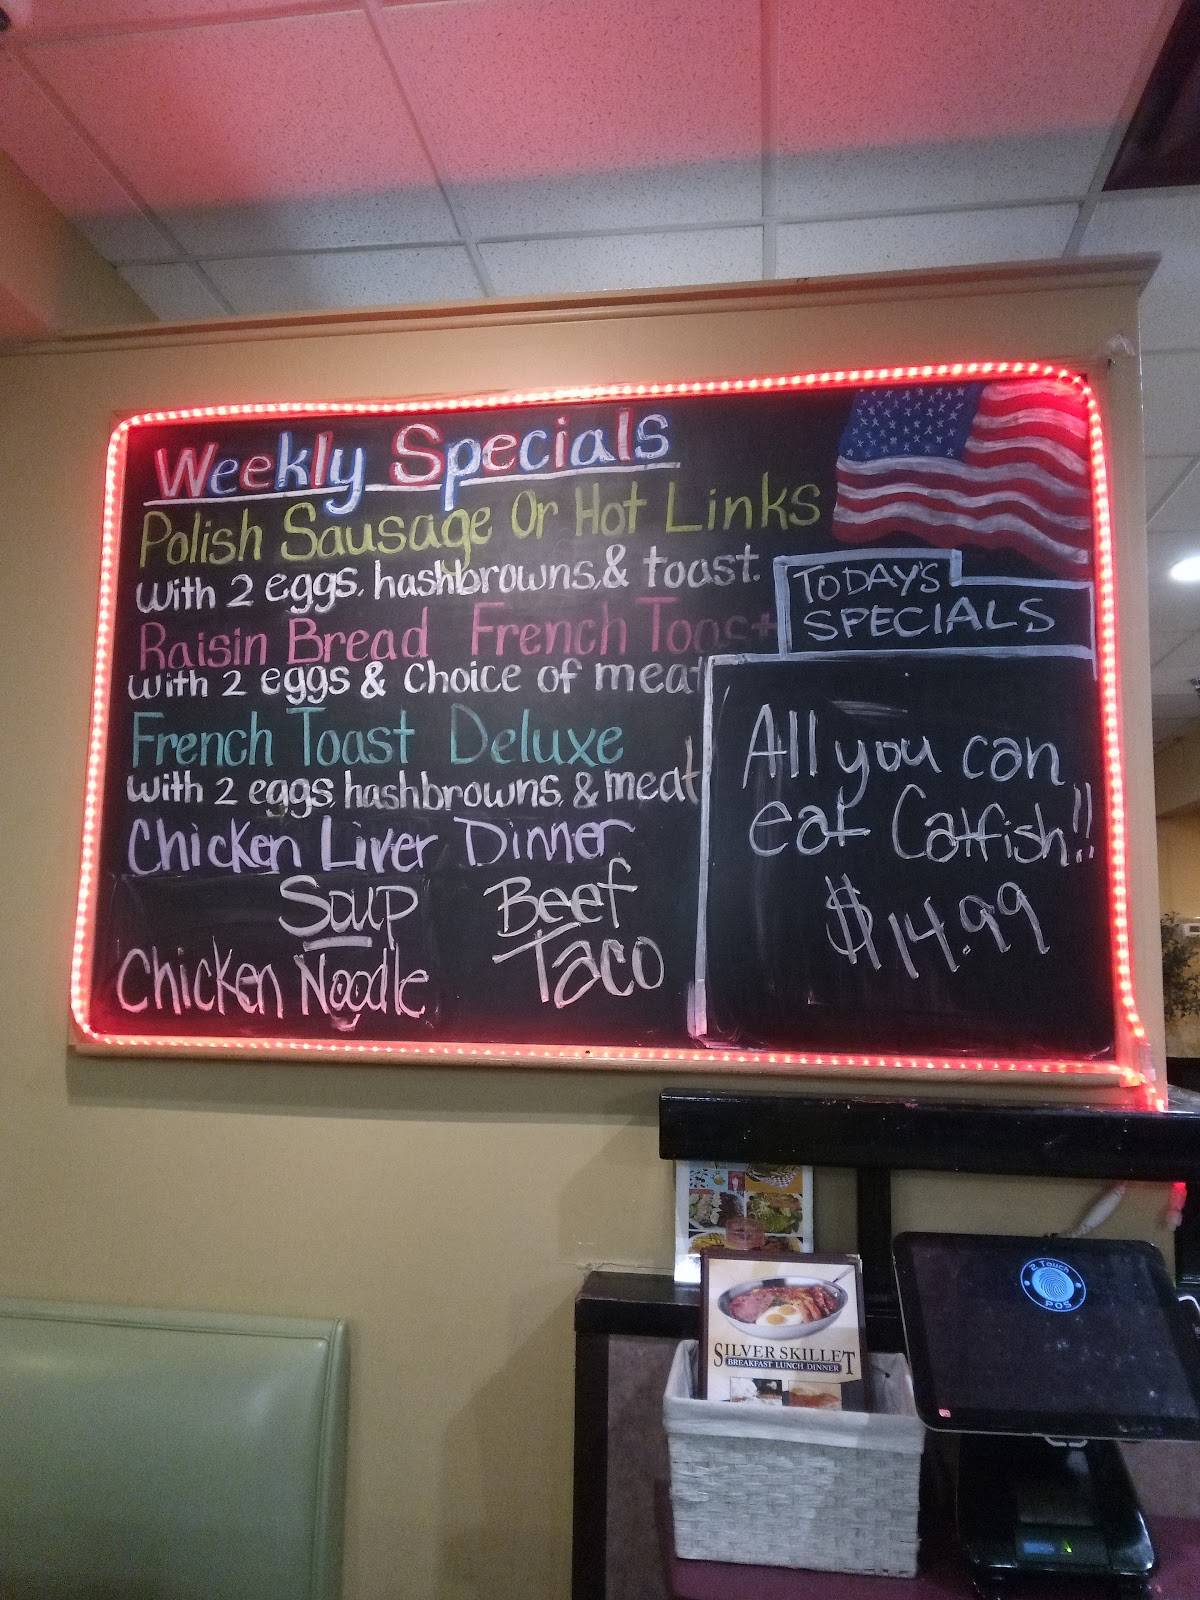 Weekly Specials
Polish Sausage Or Hot Links
with 2 eggs, hashbrowns, & toast.
Raisin Bread French Toast
with 2 eggs & choice of meat
French Toast Deluxe
with 2 eggs, hashbrowns, & meat
Chicken Liver Dinner
Soup
Chicken Noodle
Beef
Taco
TODAY'S
SPECIALS
All you can
eat Catfish!!
$14.99
SILVER SKILLET
BREAKFAST LUNCH DINNER
2 Touch
POS